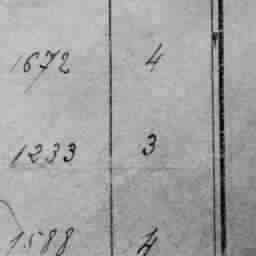 1672 4
1233 3
1588 4